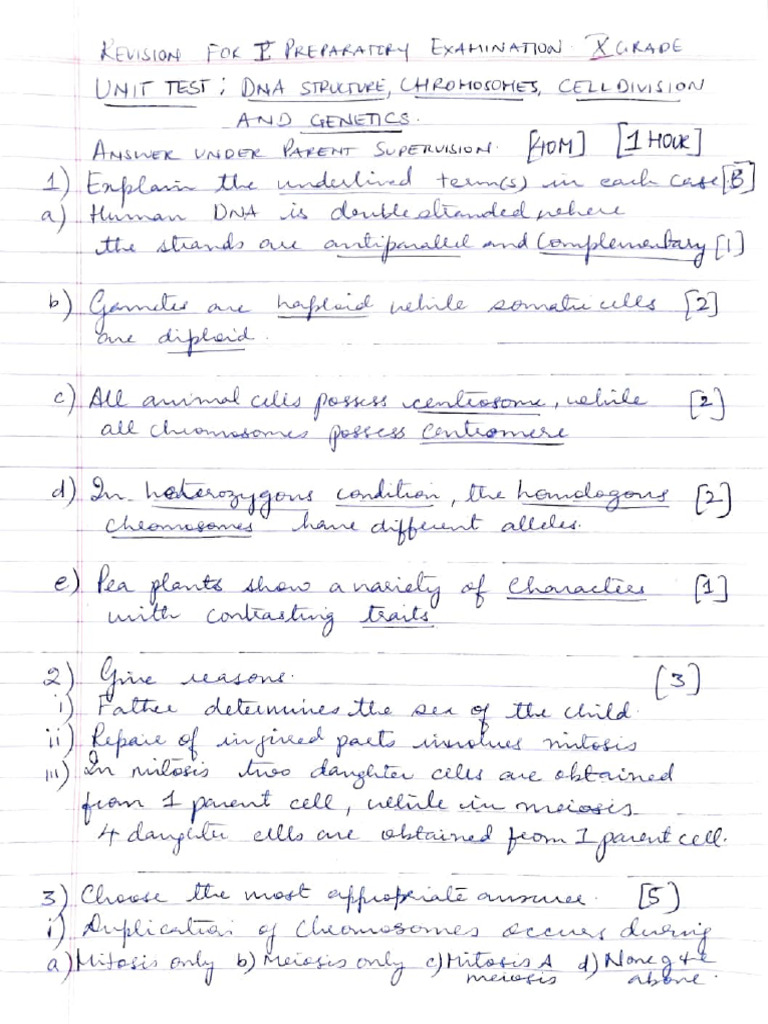 REVISION FOR I PREPARATORY EXAMINATION X GRADE
UNIT TEST: DNA STRUCTURE, CHROMOSOMES, CELL DIVISION
AND GENETICS.
ANSWER UNDER PARENT SUPERVISION. [40M] [1 HOUR]
1) Explain the underlined term(s) in each case [8]
a) Human DNA is double stranded where
the strands are antiparallel and complementary [1]
b) Gametes are haploid while somatic cells [2]
are diploid.
c) All animal cells possess centrosome, while [2]
all chromosomes possess centromere
d) In heterozygous condition, the homologous [2]
chromosomes have different alleles.
e) Pea plants show a variety of characters [1]
with contrasting traits
2) Give reasons. [3]
i) Father determines the sex of the child.
ii) Repair of injured parts involves mitosis
iii) In mitosis two daughter cells are obtained
from 1 parent cell, while in meiosis
4 daughter cells are obtained from 1 parent cell.
3) Choose the most appropriate answer. [5]
i) Duplication of chromosomes occurs during
a) Mitosis only b) Meiosis only c) Mitosis & d) None of the
meiosis above.